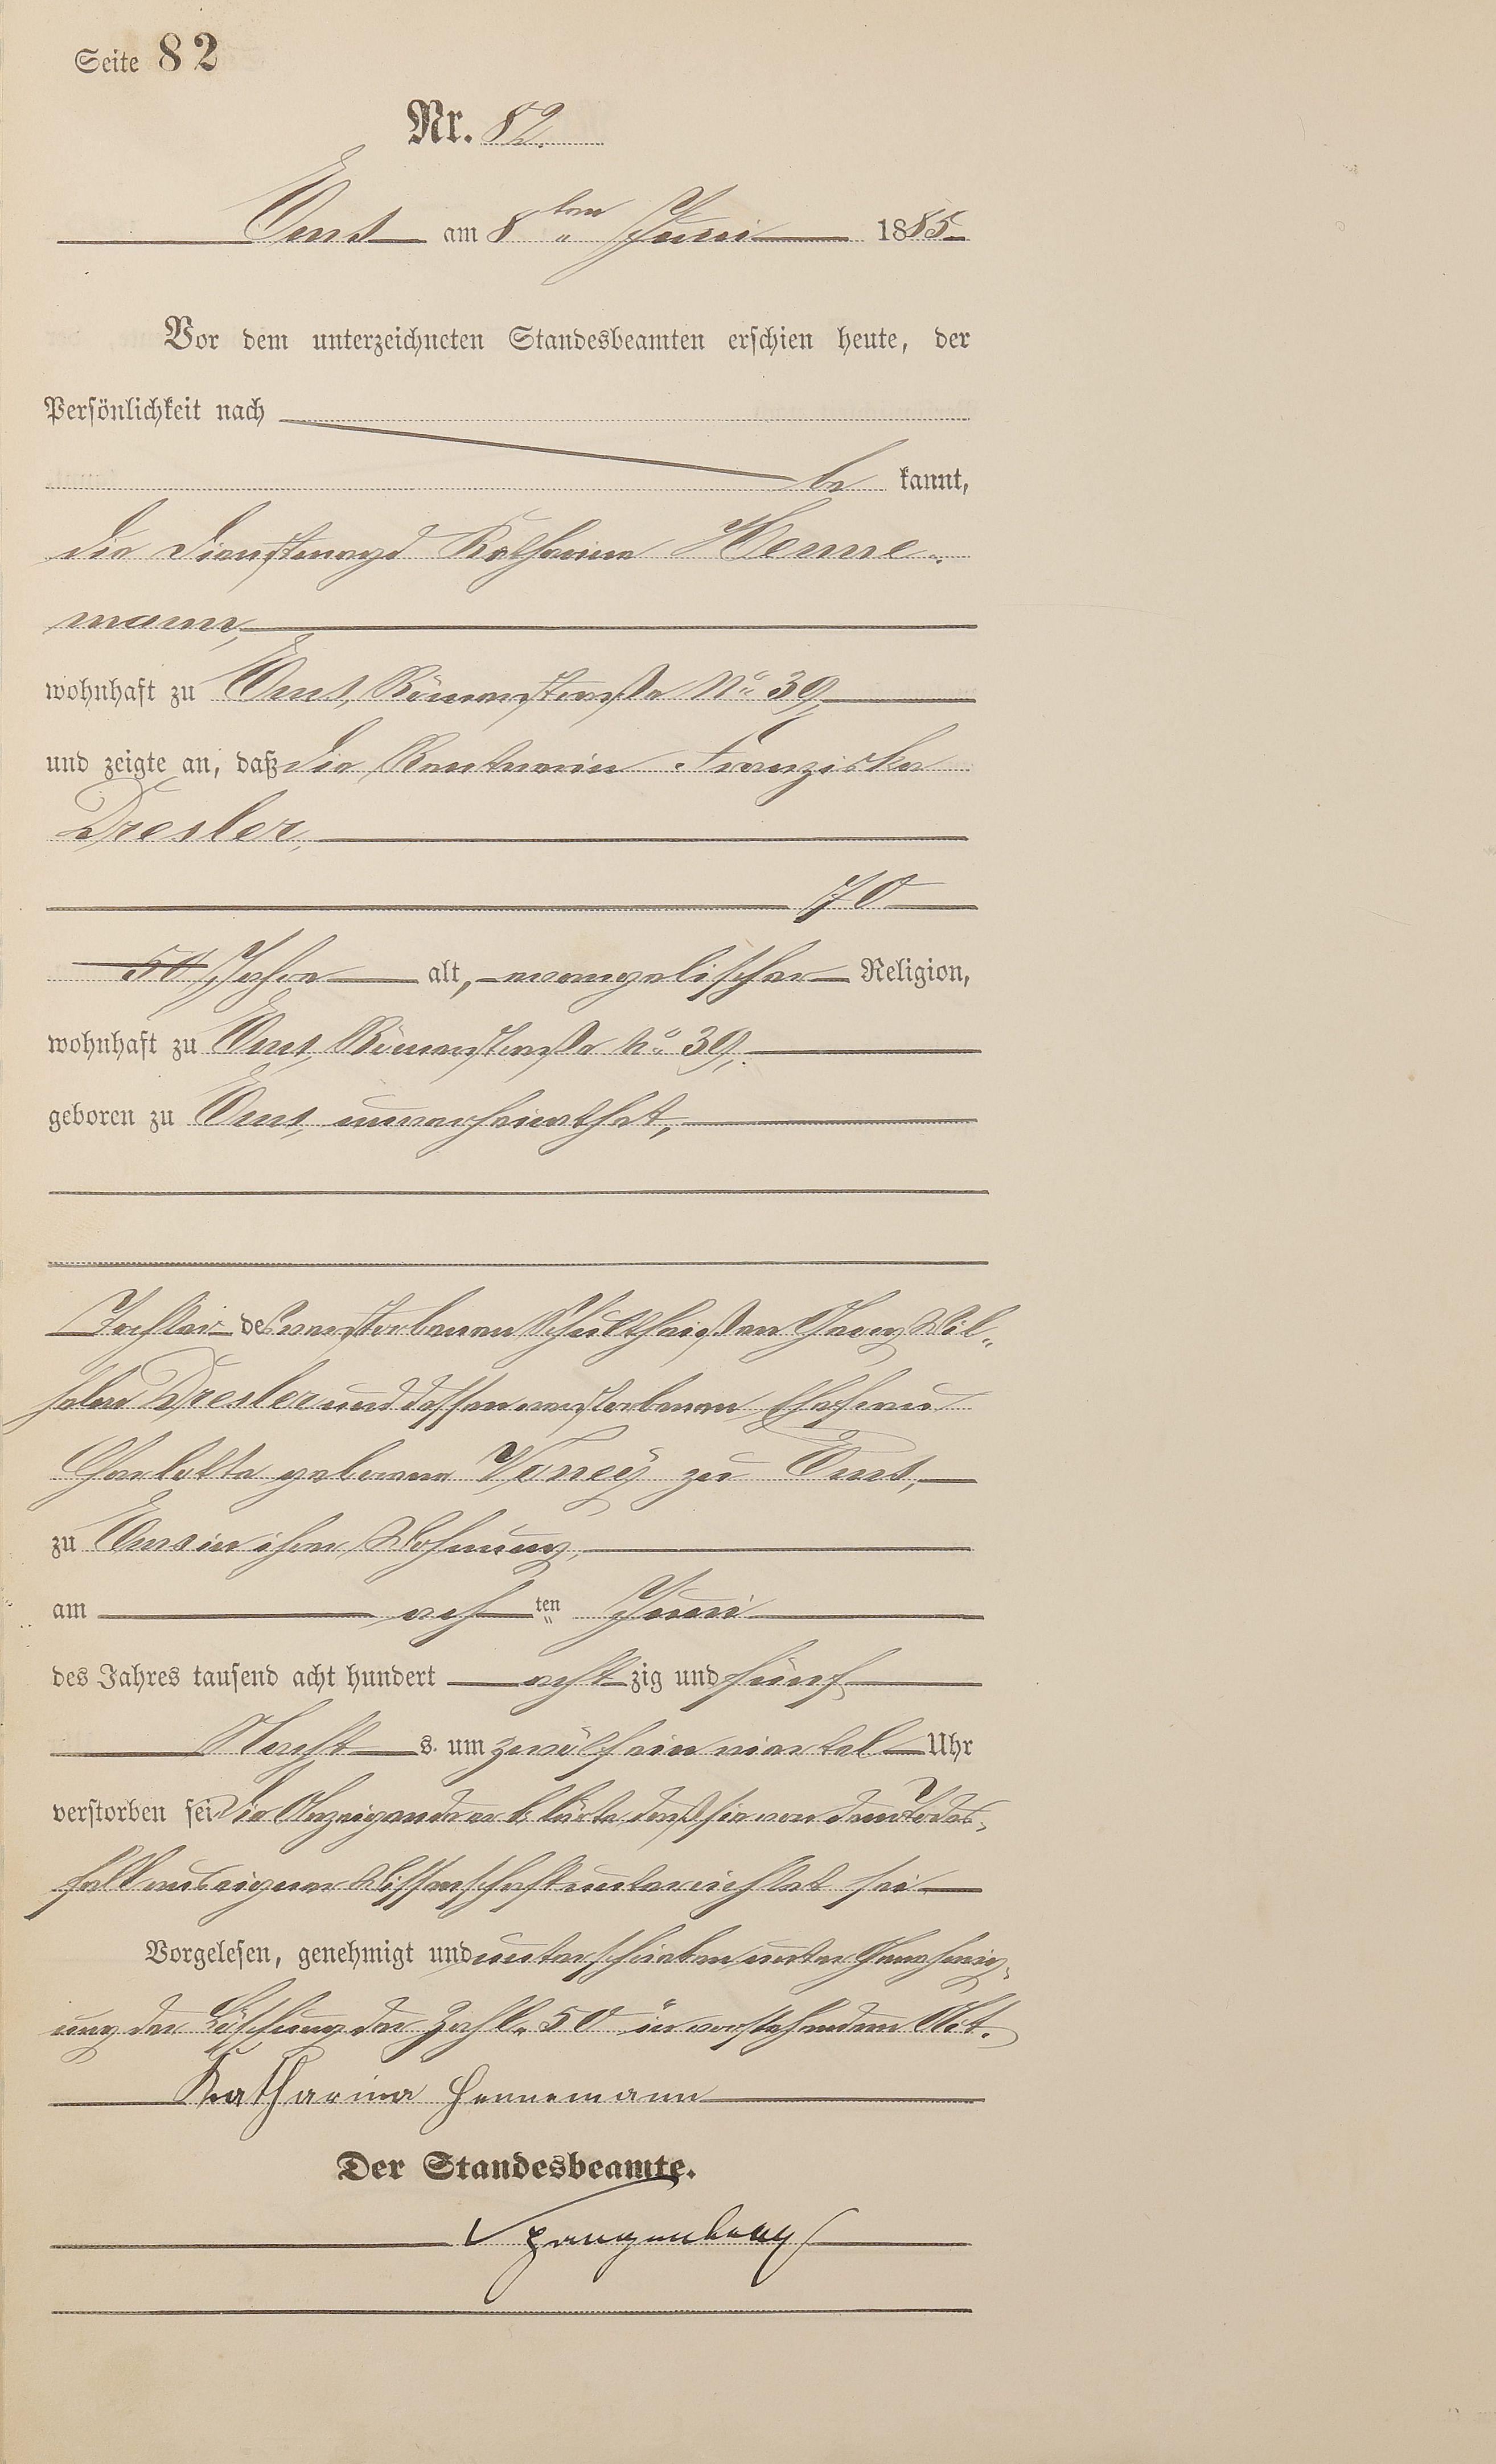 Seite 82
Nr. 82.
Ems am 8ten Juni 1885
Vor dem unterzeichneten Standesbeamten erschien heute, der
Persönlichkeit nach
be kannt,
die Dienstmagd Katharina Henne-
mann,
wohnhaft zu Ems, Römerstraße No 39,
und zeigte an, daß die Rentnerin Franziska
Dresler,
70
50 Jahre alt, evangelischer Religion,
wohnhaft zu Ems, Römerstraße No 39,
geboren zu Ems, unverheirathet,
Tochter des verstorbenen Schultheißen Georg Wil-
helm Dresler und dessen verstorbenen Ehefrau
Charlotte geborene zu Ems,
zu Ems in ihrer Wohnung,
am achten Juni
des Jahres tausend acht hundert achtzig und fünf
Nachts. um zwölf ein viertel Uhr
verstorben sei. Die Anzeigende erklärte, daß sie von dem Todes-
fall aus eigener Wissenschaft unterrichtet sei
Vorgelesen, genehmigt und unterschrieben unter Genehmig-
ung der Löschung der Zahl „50" in vorstehendem Akt.
Katharina Hennemann
Der Standesbeamte.
Spangenberg